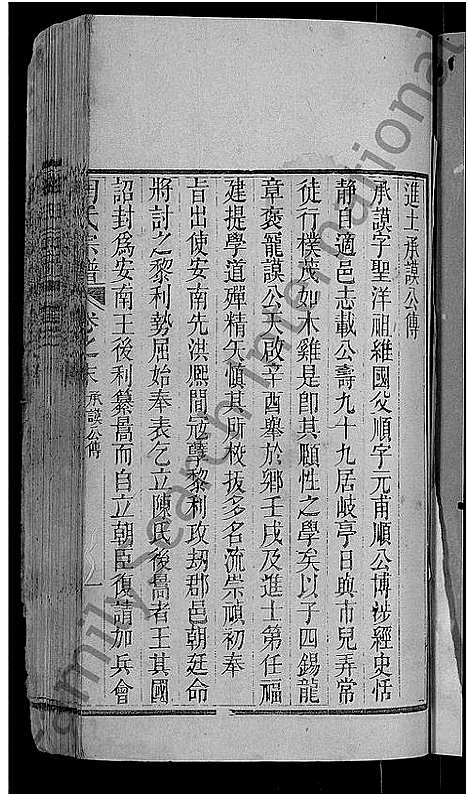 進士承謨公傳
承謨字聖洋祖維國父順字元甫順公博涉經史恬
静自適邑志載公壽九十九居岐亭日與市兒弄常
徒行樸茂如木雞是卽其願性之學矣以子四錫龍
章褒寵謨公天啟辛酉舉於鄉壬戌及進士第任福
建提學道殫精矢慎其所校拔多名流崇禎初奉
旨出使安南先洪熙間冦孽黎利攻刼郡邑朝廷命
將討之黎利勢屈始奉表乞立陳氏後暠者王其國
詔封爲安南王後利纂暠而自立朝臣復請加兵會
周氏宗譜 卷之末 承謨公傳 一
amily Search International